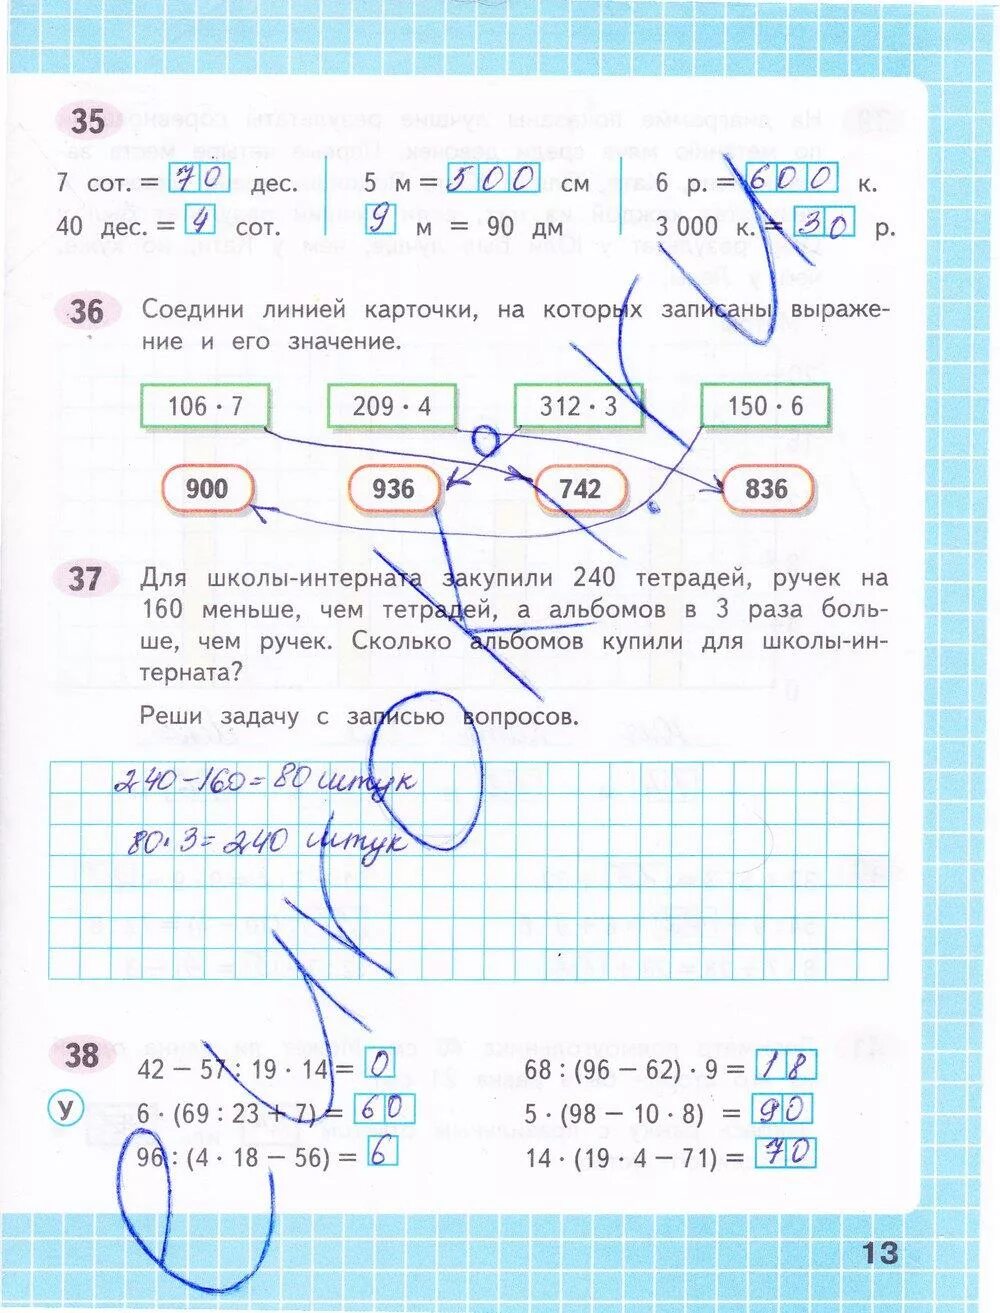 35
7 сот. = 70 дес. 5 м = 500 см 6 р. = 600 к.
40 дес. = 4 сот. 9 м = 90 дм 3 000 к. = 30 р.
36 Соедини линией карточки, на которых записаны выраже-
ние и его значение.
106 · 7 209 · 4 312 · 3 150 · 6
900 936 742 836
37 Для школы-интерната закупили 240 тетрадей, ручек на
160 меньше, чем тетрадей, а альбомов в 3 раза боль-
ше, чем ручек. Сколько альбомов купили для школы-ин-
терната?
Реши задачу с записью вопросов.
240-160=80 штук
80·3=240 штук
38
42 – 57 : 19 · 14 = 0 68 : (96 – 62) · 9 = 18
У 6 · (69 : 23 + 7) = 60 5 · (98 – 10 · 8) = 90
96 : (4 · 18 – 56) = 6 14 · (19 · 4 – 71) = 70
13